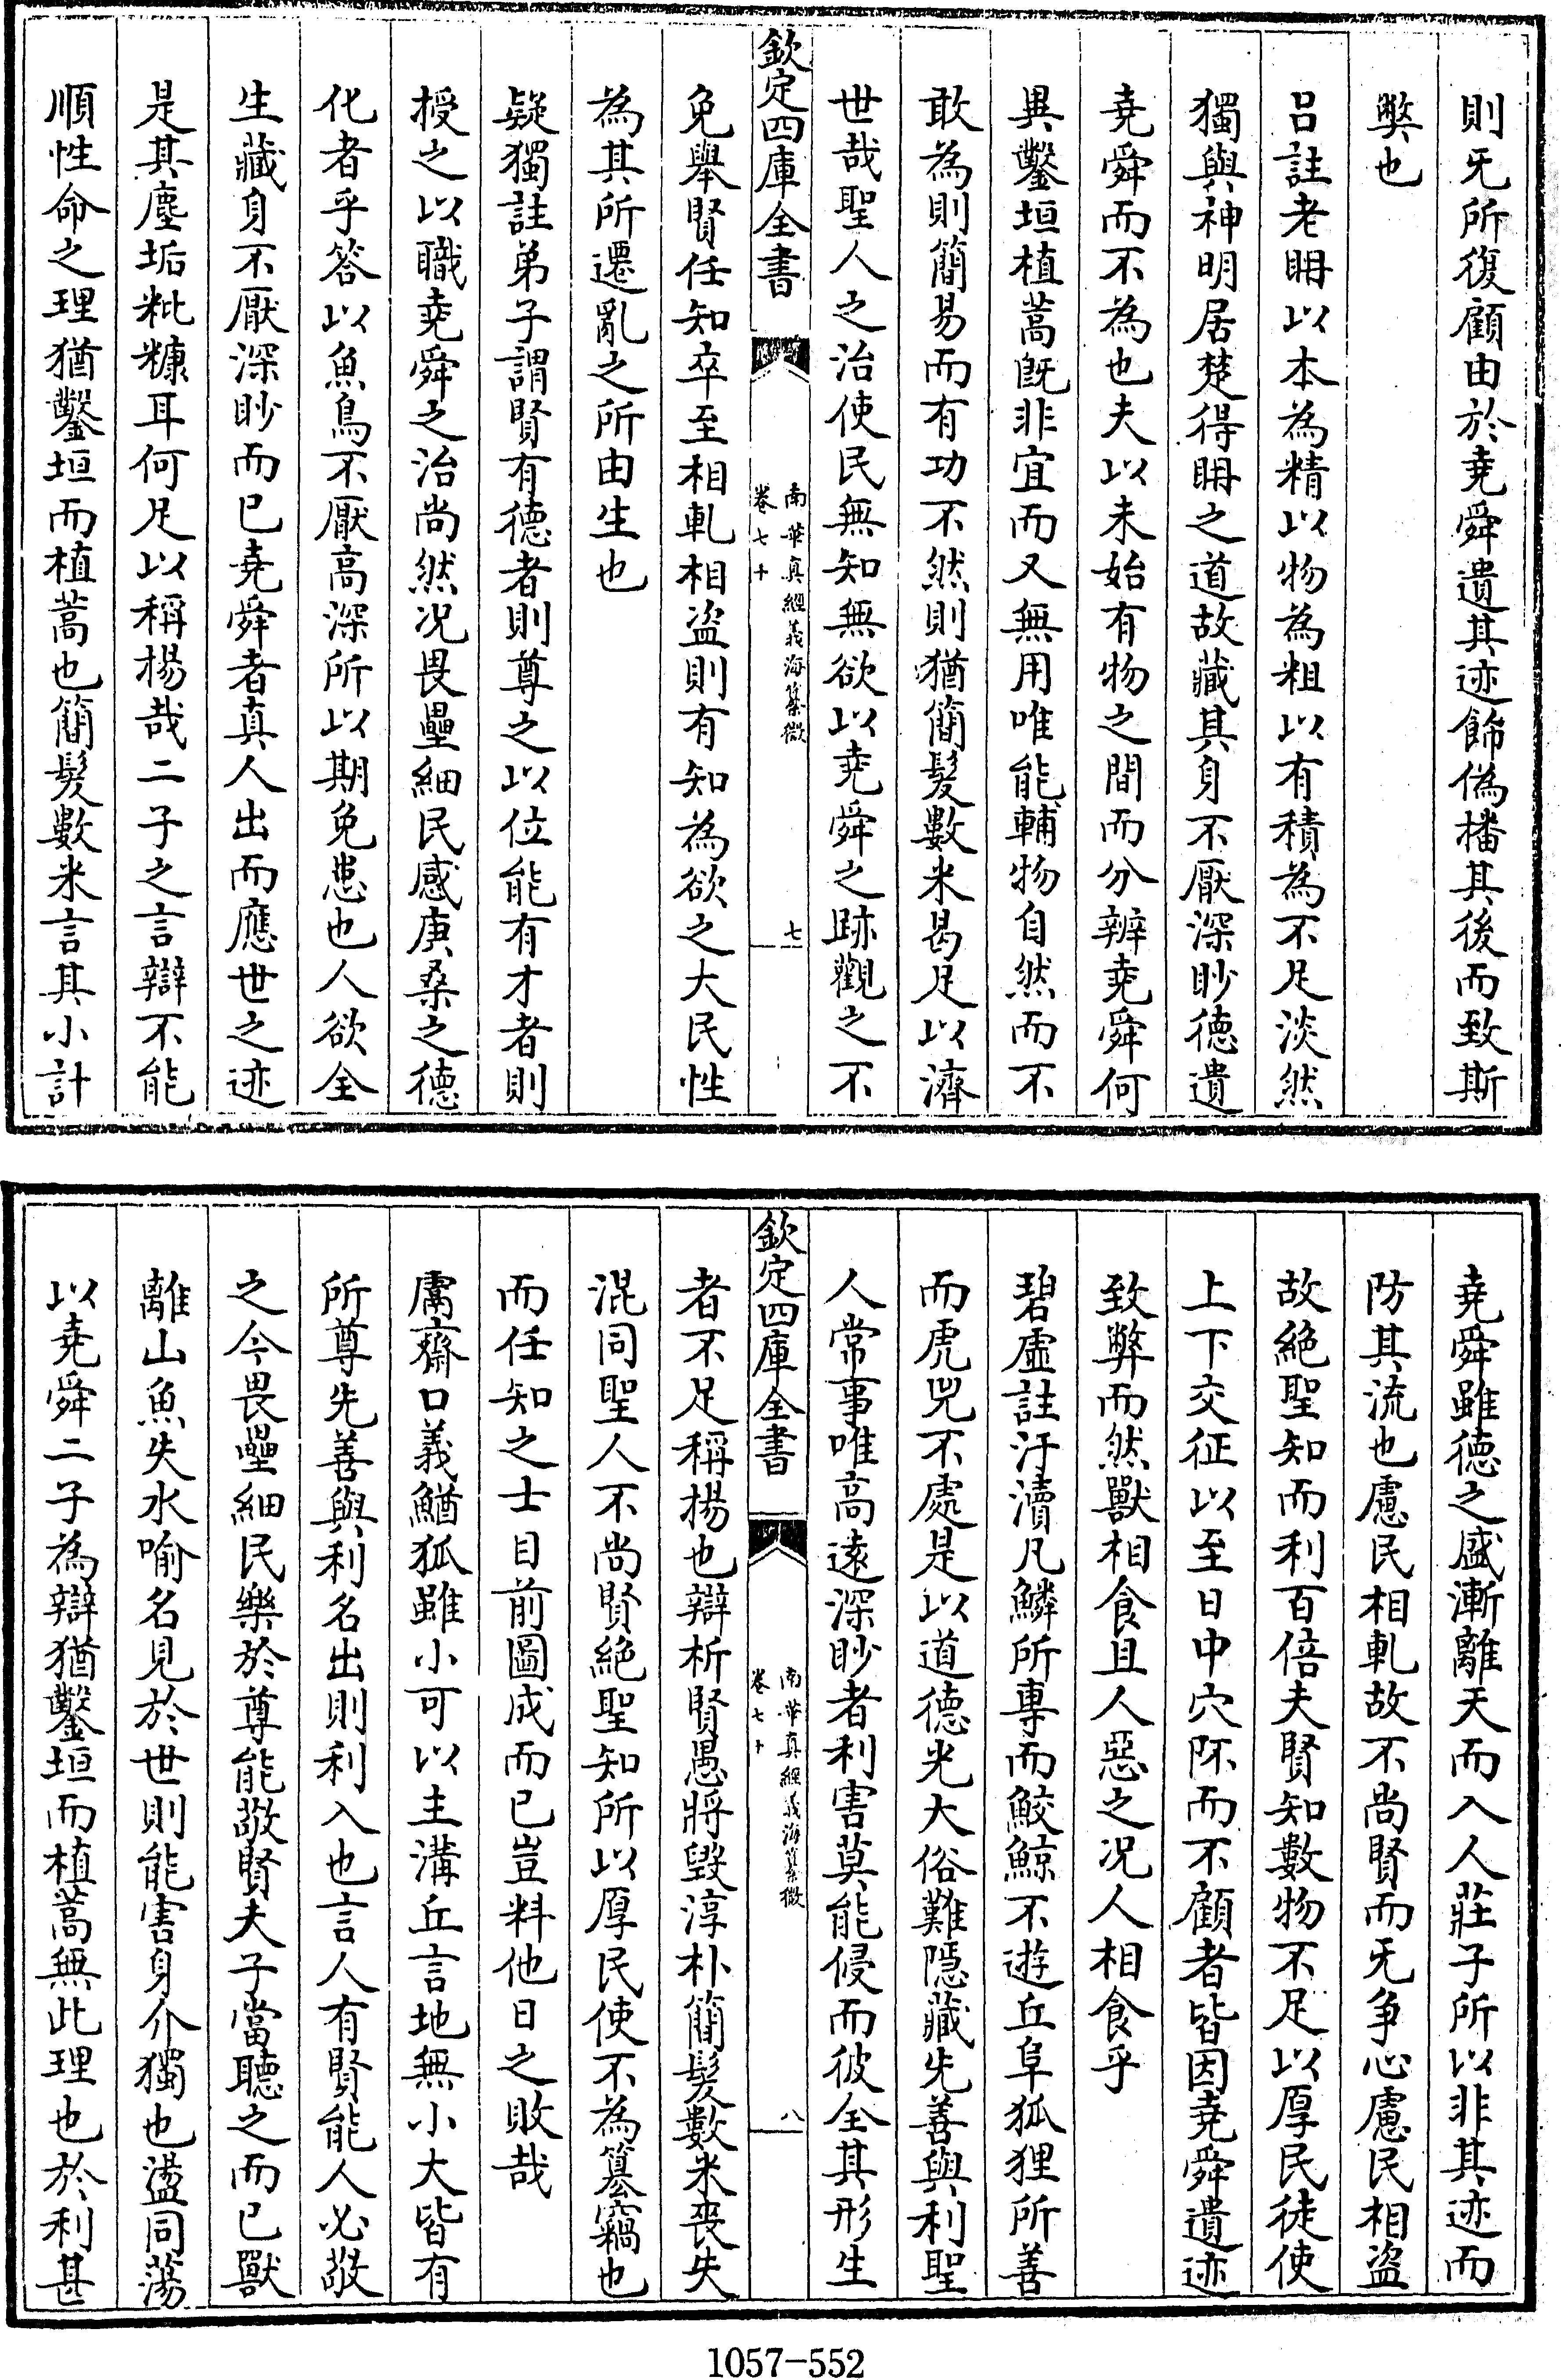 則旡所復顧由於堯舜遺其迹飾偽播其後而致斯
弊也
吕註老聃以本為精以物為粗以有積為不足淡然
獨與神明居楚得聃之道故藏其身不厭深眇徳遺
堯舜而不為也夫以未始有物之間而分辨堯舜何
異鑿垣植蒿旣非宜而又無用唯能輔物自然而不
敢為則簡易而有功不然則猶簡髮數米曷足以濟
世哉聖人之治使民無知無欲以堯舜之跡觀之不
欽定四庫全書
南華真經義海纂微
卷七十
七
免舉賢任知卒至相軋相盗則有知為欲之大民性
為其所遷亂之所由生也
疑獨註弟子謂賢有徳者則尊之以位能有才者則
授之以職堯舜之治尚然况畏壘細民感庚桑之徳
化者乎答以魚鳥不厭高深所以期免患也人欲全
生藏身不厭深眇而已堯舜者真人出而應世之迹
是其塵垢粃糠耳何足以稱楊哉二子之言辯不能
順性命之理猶鑿垣而植蒿也簡髮數米言其小計
堯舜雖徳之盛漸離天而入人莊子所以非其迹而
防其流也慮民相軋故不尚賢而旡争心慮民相盗
故絶聖知而利百倍夫賢知數物不足以厚民徒使
上下交征以至日中穴阫而不顧者皆因堯舜遺迹
致弊而然獸相食且人惡之况人相食乎
碧虛註汙瀆凡鱗所專而鮫鯨不遊丘阜狐狸所善
而虎兕不處是以道徳光大俗難隱藏先善與利聖
人常事唯高逺深眇者利害莫能侵而彼全其形生
欽定四庫全書
南華真經義海纂微
卷七十
八
者不足稱揚也辯析賢愚將毀淳朴簡髮數米喪失
混同聖人不尚賢絶聖知所以厚民使不為篡竊也
而任知之士目前圖成而已豈料他日之敗哉
鬳齋口義鰌狐雖小可以主溝丘言地無小大皆有
所尊先善與利名出則利入也言人有賢能人必敬
之今畏壘細民樂於尊能敬賢夫子當聽之而已獸
離山魚失水喻名見於世則能害身介獨也盪同蕩
以堯舜二子為辯猶鑿垣而植蒿無此理也於利甚
1057-552